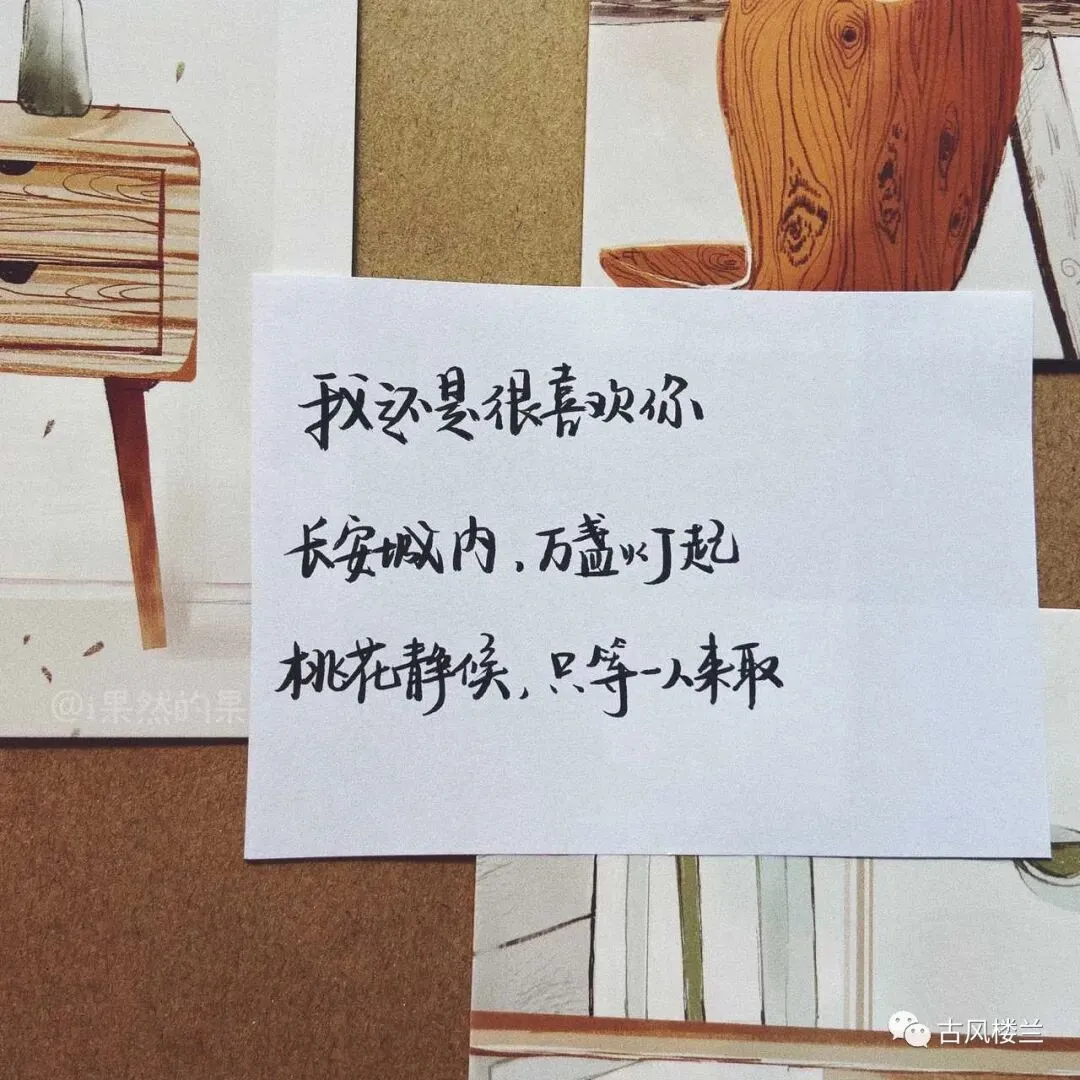 我还是很喜欢你
长安城内,万盏灯起
桃花静候,只等一人来取
@i果然的果
古风楼兰